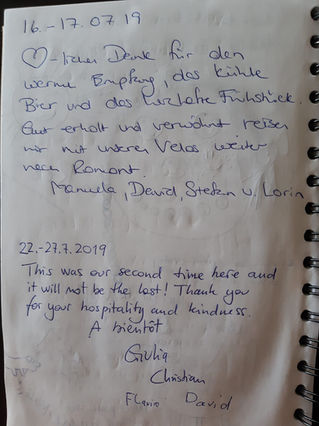 16. – 17.07 19
♡-lichen Dank für den
warme Empfang, das kühle
Bier und das herzhafte Frühstück.
Gut erholt und verwöhnt reisen
wir mit unseren Velos weiter
nach Romont.
Manuela, David, Stefan u. Lorin
22.-27.7.2019
This was our second time here and
it will not be the last! Thank you
for your hospitality and kindness.
A bientôt
Giulia
Christian
Flavio David